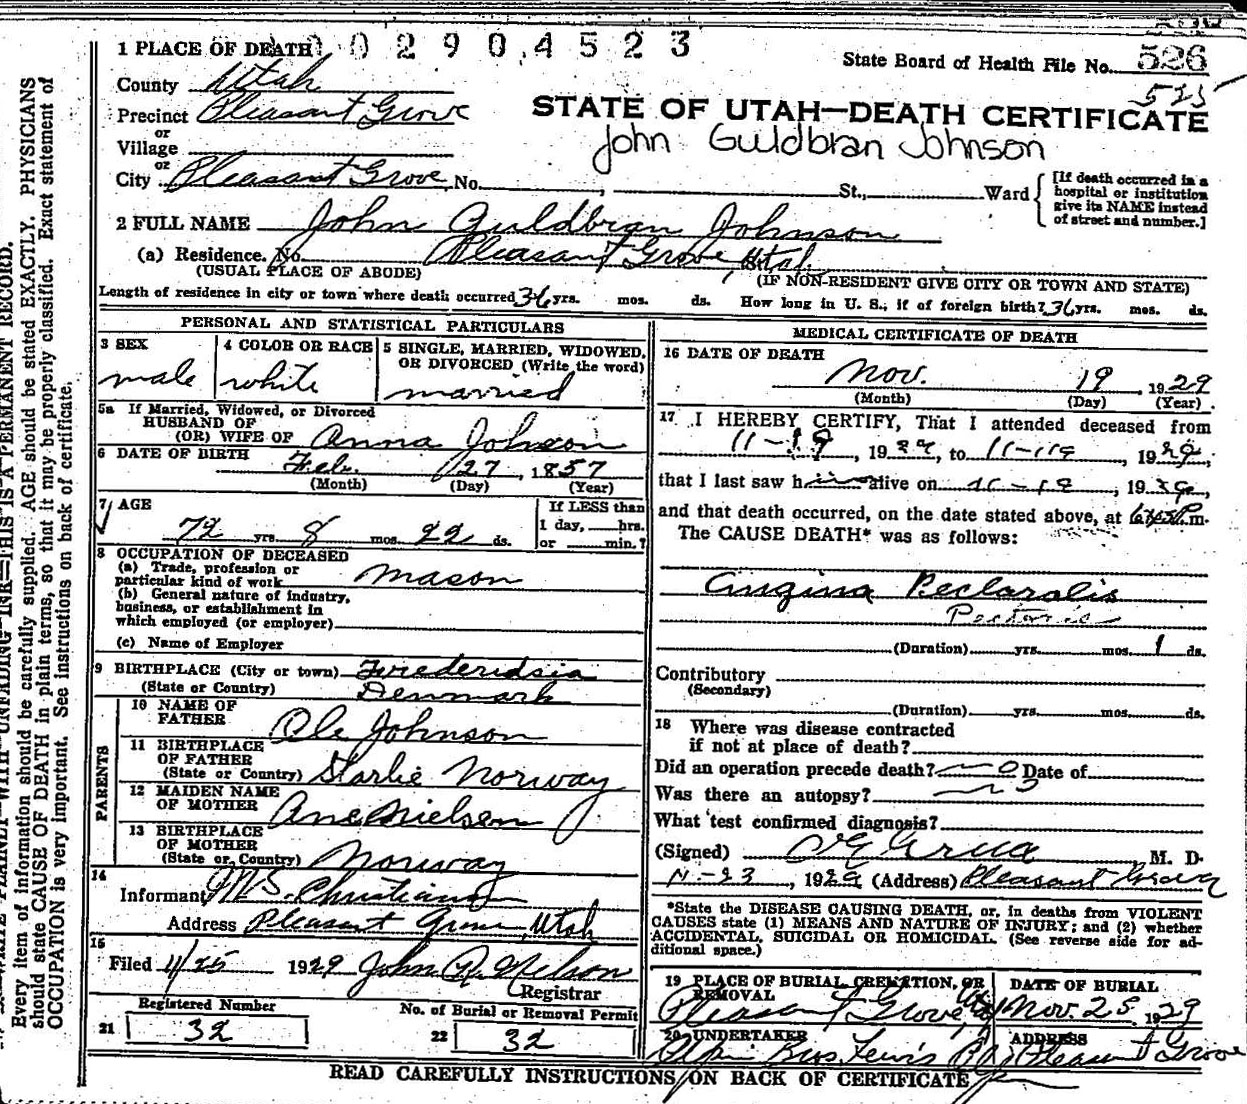 1 PLACE OF DEATH 0 0 2 9 0 4 5 2 3
State Board of Health File No. 526
525
County Utah
Precinct Pleasant Grove
or
Village
or
City Pleasant Grove, No. , St., Ward
[If death occurred in a hospital or institution give its NAME instead of street and number.]
STATE OF UTAH—DEATH CERTIFICATE
John Guldbran Johnson
2 FULL NAME John Guldbran Johnson
(a) Residence. No. Pleasant Grove, Utah
(USUAL PLACE OF ABODE) (IF NON-RESIDENT GIVE CITY OR TOWN AND STATE)
Length of residence in city or town where death occurred 36 yrs. mos. ds. How long in U. S., if of foreign birth? 36 yrs. mos. ds.
PERSONAL AND STATISTICAL PARTICULARS
3 SEX
male
4 COLOR OR RACE
white
5 SINGLE, MARRIED, WIDOWED, OR DIVORCED (Write the word)
married
5a If Married, Widowed, or Divorced
HUSBAND OF
(OR) WIFE OF Anna Johnson
6 DATE OF BIRTH Feb. 27, 1857
(Month) (Day) (Year)
7 AGE
72 yrs. 8 mos. 22 ds.
If LESS than
1 day, hrs.
or min.?
8 OCCUPATION OF DECEASED
(a) Trade, profession or
particular kind of work Mason
(b) General nature of industry,
business, or establishment in
which employed (or employer)
(c) Name of Employer
9 BIRTHPLACE (City or town)
(State or Country) Denmark
PARENTS
10 NAME OF
FATHER Ole Johnson
11 BIRTHPLACE
OF FATHER
(State or Country) Norway
12 MAIDEN NAME
OF MOTHER Ane Nielsen
13 BIRTHPLACE
OF MOTHER
(State or Country) Norway
14
Informant Christiansen
Address Pleasant Grove, Utah
15
Filed 11/25 1929 John R. Nelson
Registrar
Registered Number
21 32
No. of Burial or Removal Permit
22 32
MEDICAL CERTIFICATE OF DEATH
16 DATE OF DEATH
Nov. 19, 1929
(Month) (Day) (Year)
17 I HEREBY CERTIFY, That I attended deceased from
11-19, 1929, to 11-19, 1929,
that I last saw him alive on 11-19, 1929,
and that death occurred, on the date stated above, at m.
The CAUSE DEATH* was as follows:
Angina
Pectoris
(Duration) yrs. mos. 1 ds.
Contributory
(Secondary)
(Duration) yrs. mos. ds.
18 Where was disease contracted
if not at place of death?
Did an operation precede death? no Date of
Was there an autopsy? no
What test confirmed diagnosis?
(Signed) Grua, M. D.
11-23, 1929 (Address) Pleasant Grove
*State the DISEASE CAUSING DEATH, or, in deaths from VIOLENT
CAUSES state (1) MEANS AND NATURE OF INJURY; and (2) whether
ACCIDENTAL, SUICIDAL OR HOMICIDAL. (See reverse side for ad-
ditional space.)
19 PLACE OF BURIAL, CREMATION, OR
REMOVAL
Pleasant Grove
DATE OF BURIAL
Nov. 25, 1929
20 UNDERTAKER
Bros.
ADDRESS
Pleasant Grove
READ CAREFULLY INSTRUCTIONS ON BACK OF CERTIFICATE
WITH UNFADING INK—THIS IS A PERMANENT RECORD.
Every item of information should be carefully supplied. AGE should be stated EXACTLY. PHYSICIANS
should state CAUSE OF DEATH in plain terms, so that it may be properly classified. Exact statement of
OCCUPATION is very important. See instructions on back of certificate.